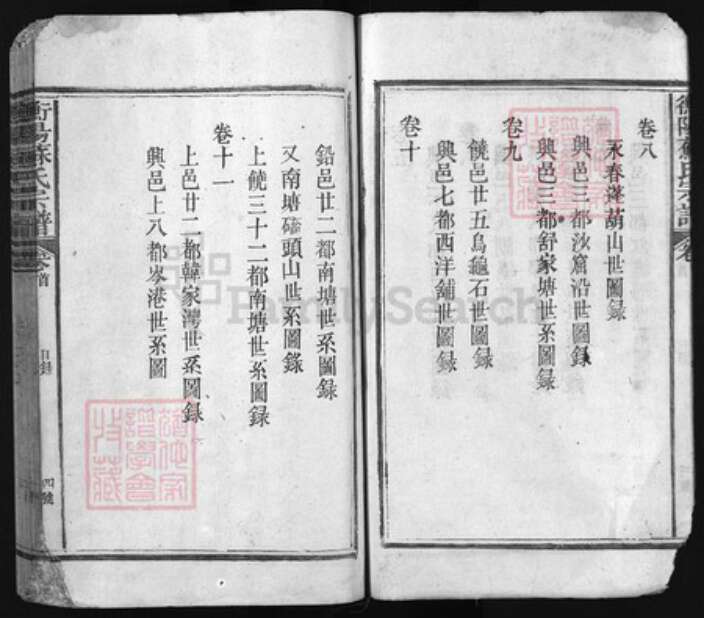 卷八
永春蓬葫山世圖錄
興邑三都汝窟沿世圖錄
興邑三都舒家塘世系圖錄
卷九
饒邑廿五烏龜石世圖錄
興邑七都西洋舖世圖錄
卷十
鉛邑廿二都南塘世系圖錄
又南塘磁頭山世系圖錄
上饒三十二都南塘世系圖錄
卷十一
上邑廿二都韓家灣世系圖錄
興邑上八都岑港世系圖
衡陽蘇氏宗譜
卷首
目錄
四號
FamilySearch
譜學會